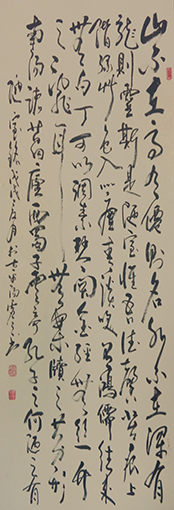 山不在高有僊則名水不在深有
龍則靈斯是陋室惟吾德馨苔痕上
階綠草色入簾青談笑有鴻儒往來
無白丁可以調素琴閱金經無絲竹
之亂耳無案牘之勞形
南陽諸葛廬西蜀子雲亭孔子云何陋之有
陋室銘戊戌夏月於